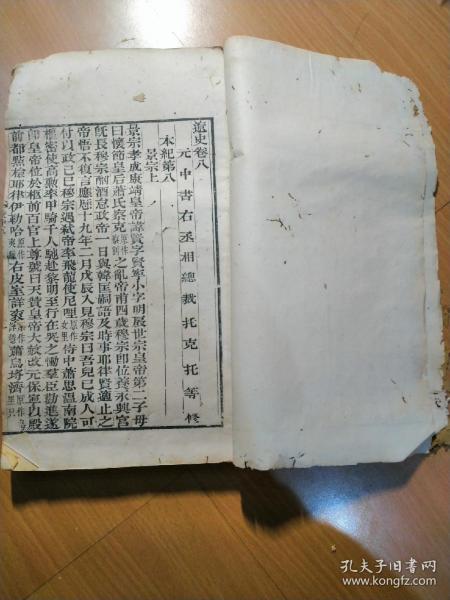 遼史卷八
元中書右丞相總裁托克托等修
本紀第八
景宗上
景宗孝成康靖皇帝諱賢字賢寧小字明扆世宗皇帝第二子母
曰懷節皇后蕭氏察克原作察割之亂帝甫四歲穆宗即位養永興宮
既長穆宗酗酒怠政帝一日與韓匡嗣語及時事耶律賢適止之
帝悟不復言應歷十九年二月戊辰入見穆宗曰吾兒已成人可
付以政己巳穆宗遇弒帝率飛龍使尼哩原作女里侍中蕭思溫南院
樞密使高勲率甲騎千人馳赴黎明至行在哭之慟羣臣勸進遂
即皇帝位於柩前百官上尊號曰天贊皇帝大赦改元保寧以殿
前都點檢耶律伊勒哈原作夷臘右皮室詳袞原作詳穩蕭烏塔濟原作烏里只
孔夫子旧书网
www.kongfz.com